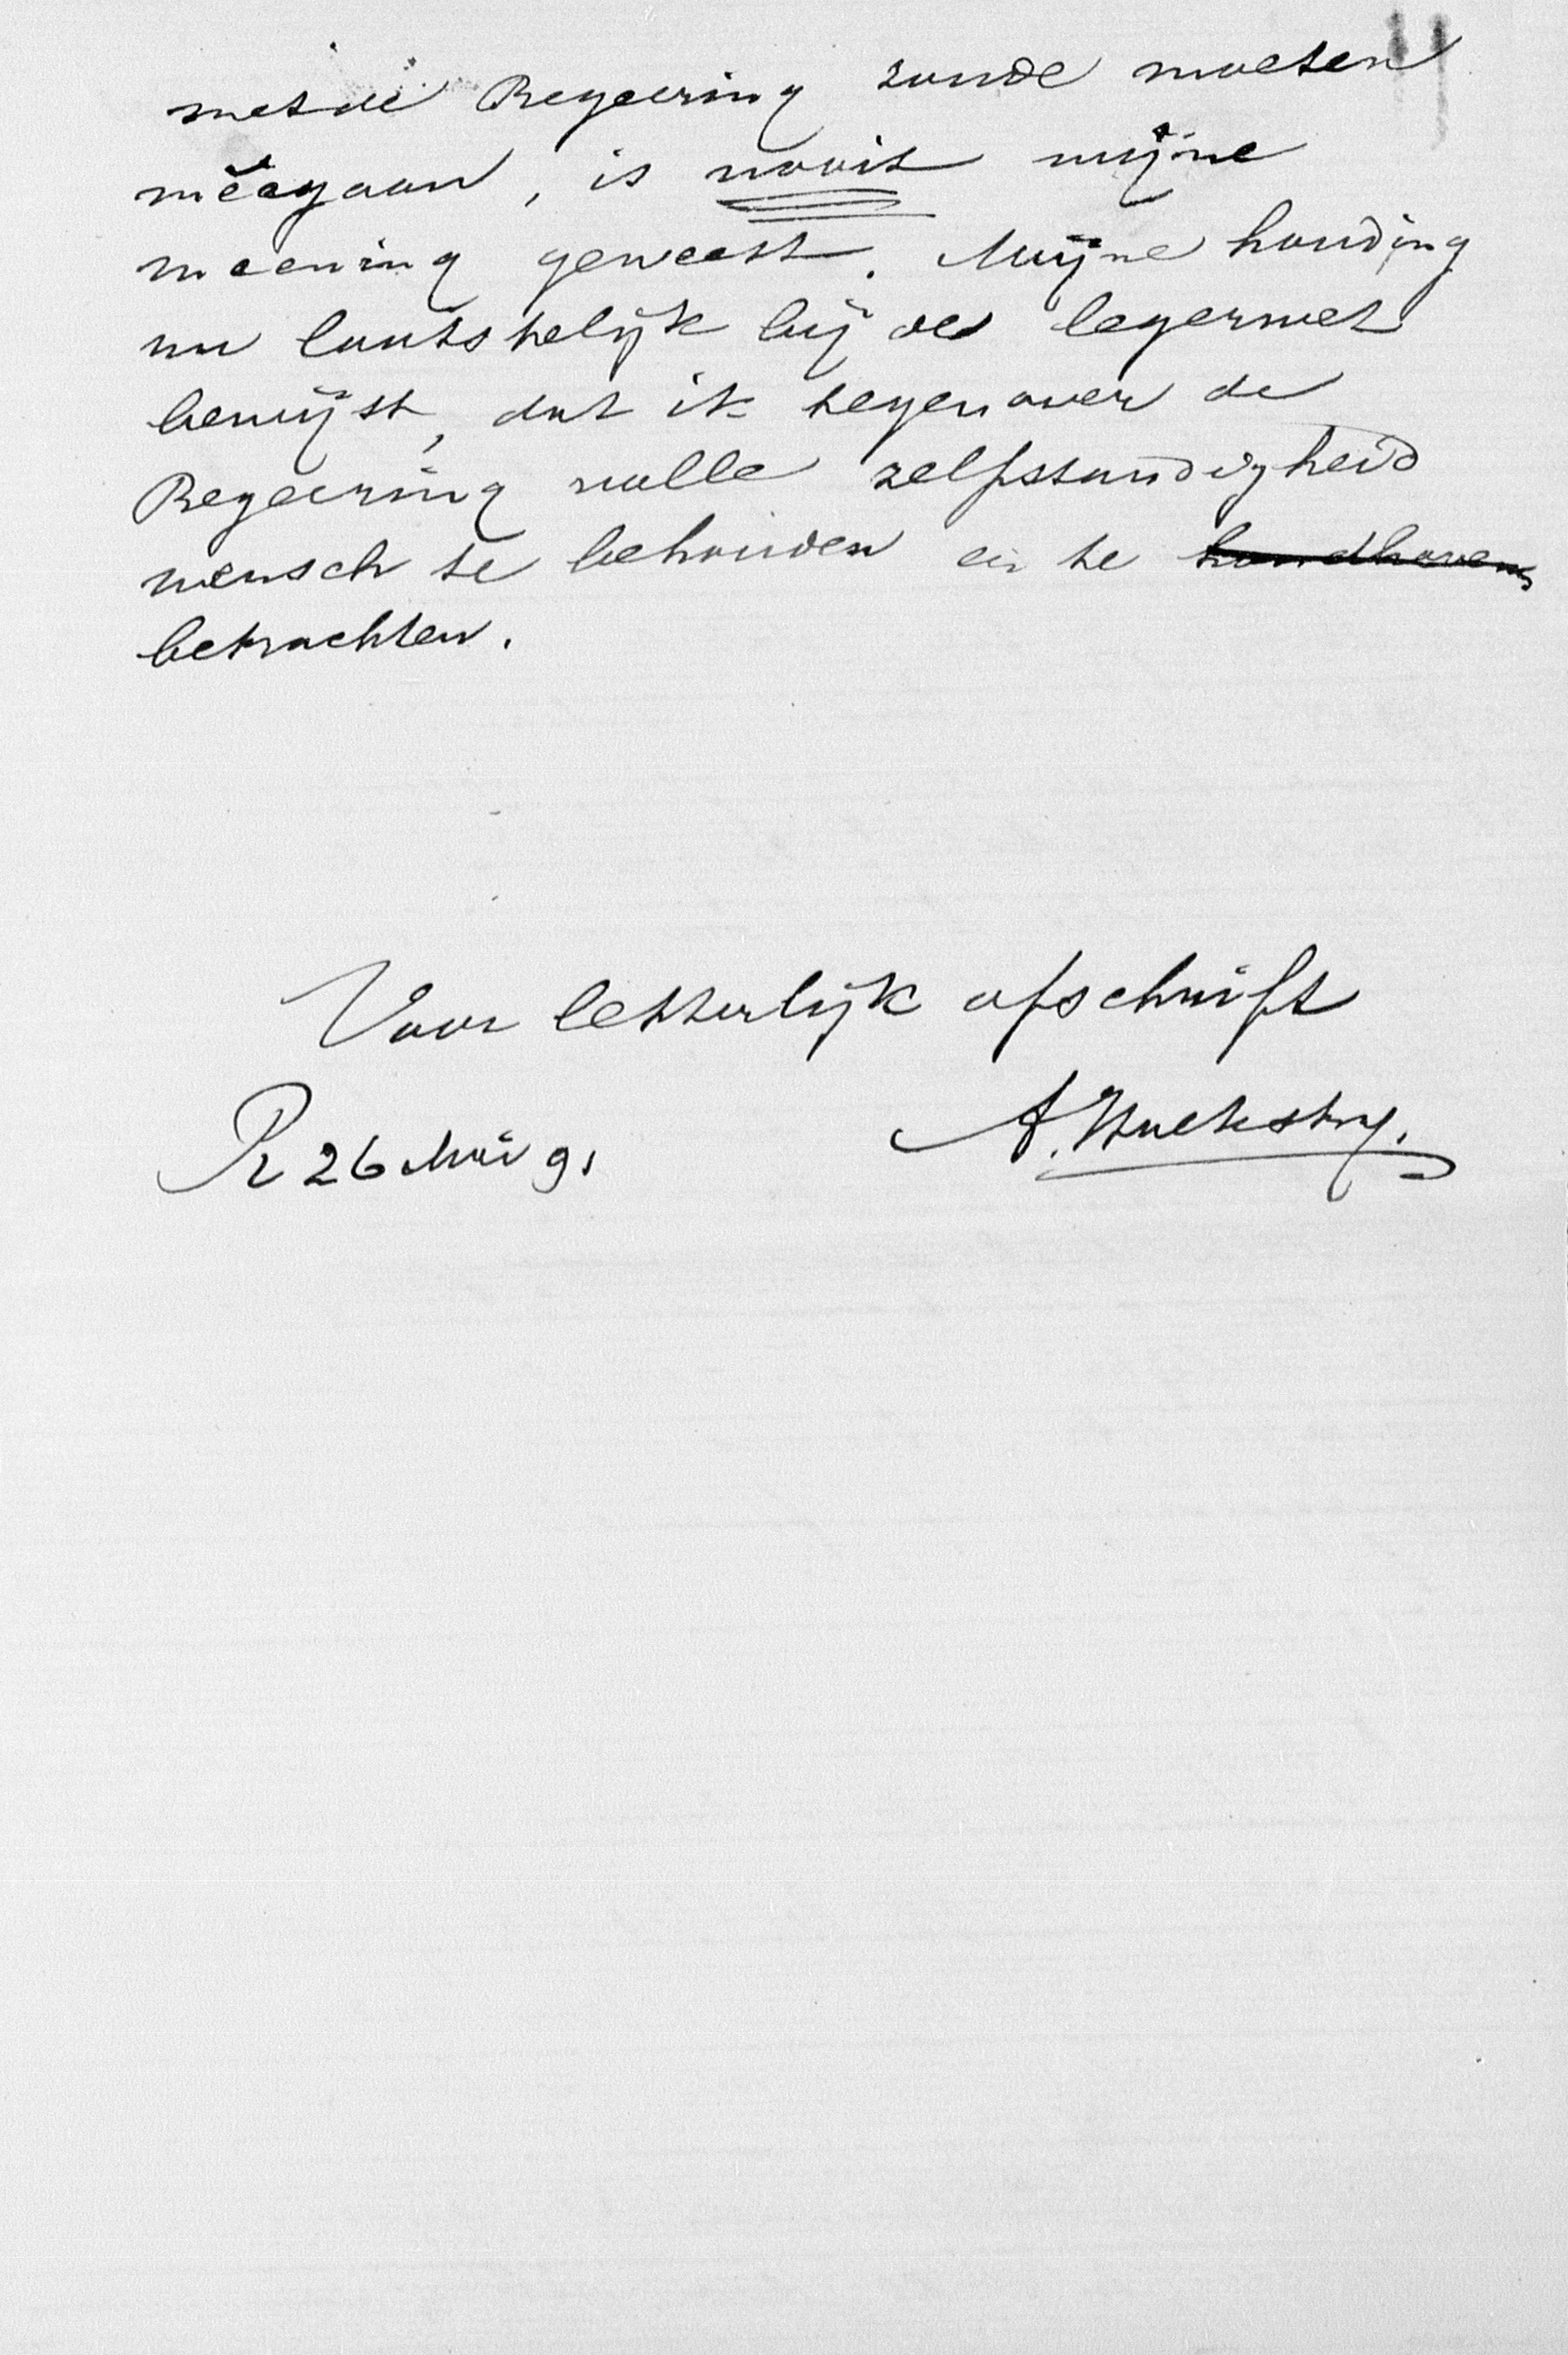 met de Regeering zoude moeten
meegaan, is nooit mijne
meening geweest. Mijne houding
nu laatstelijk bij de legerwet
bewijst, dat ik tegenover de
Regeering volle zelfstandigheid
wensch te behouden en te handhaven
betrachten.
Voor letterlijk afschrift
R 26 Mei 91
A.